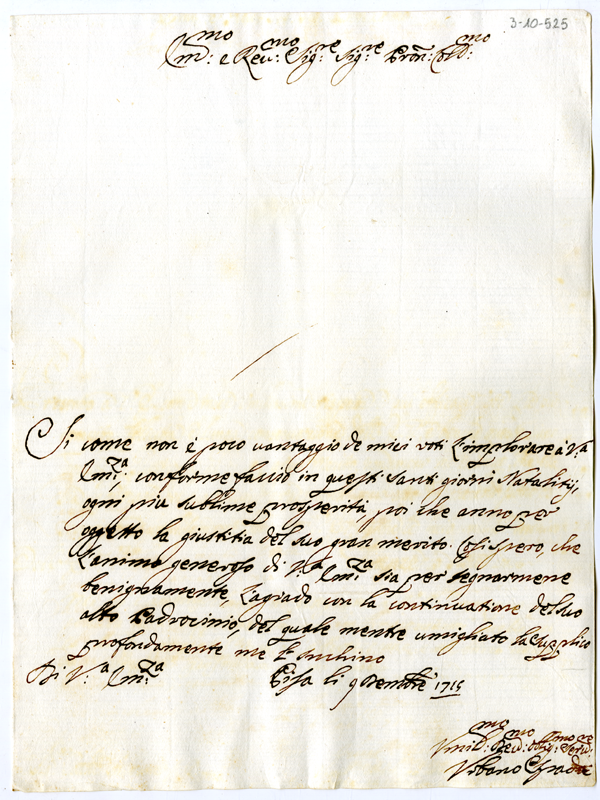 3-10-525
Em:mo e Reu:mo Sig:re Sig:re Pron: Col:mo
Si come non è poco vantaggio de miei voti l'implorare à V:a
Em:za, conforme faccio in questi santi giorni Natalitij,
ogni piu sublime prosperità, poi che anno per
oggetto la giustitia del suo gran merito. Cosi spero, che
l'animo generoso di V:a Em:za sia per segnarmene
benignamente, l'agrado con la continuatione del suo
alto Padrocinio, del quale mentre umigliato la supplico
profondamente me le inchino
Di V:a Em:za
Pisa li 9 Dembre 1715
Vmil:mo Deu:mo Obg:mo Seru:re
Vrbano